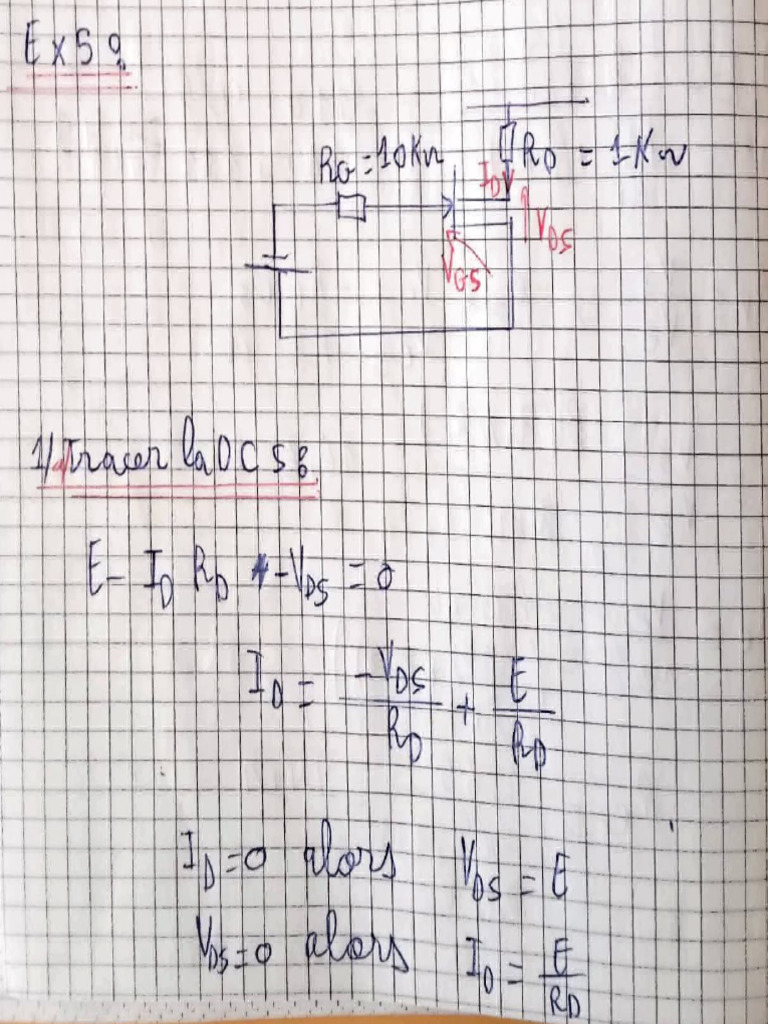 Ex 5 :
RG = 10KΩ
RD = 1KΩ
ID
VDS
VGS
1/ Tracer la DCS :
E - ID RD - VDS = 0
ID = -VDS/RD + E/RD
ID = 0 alors VDS = E
VDS = 0 alors ID = E/RD